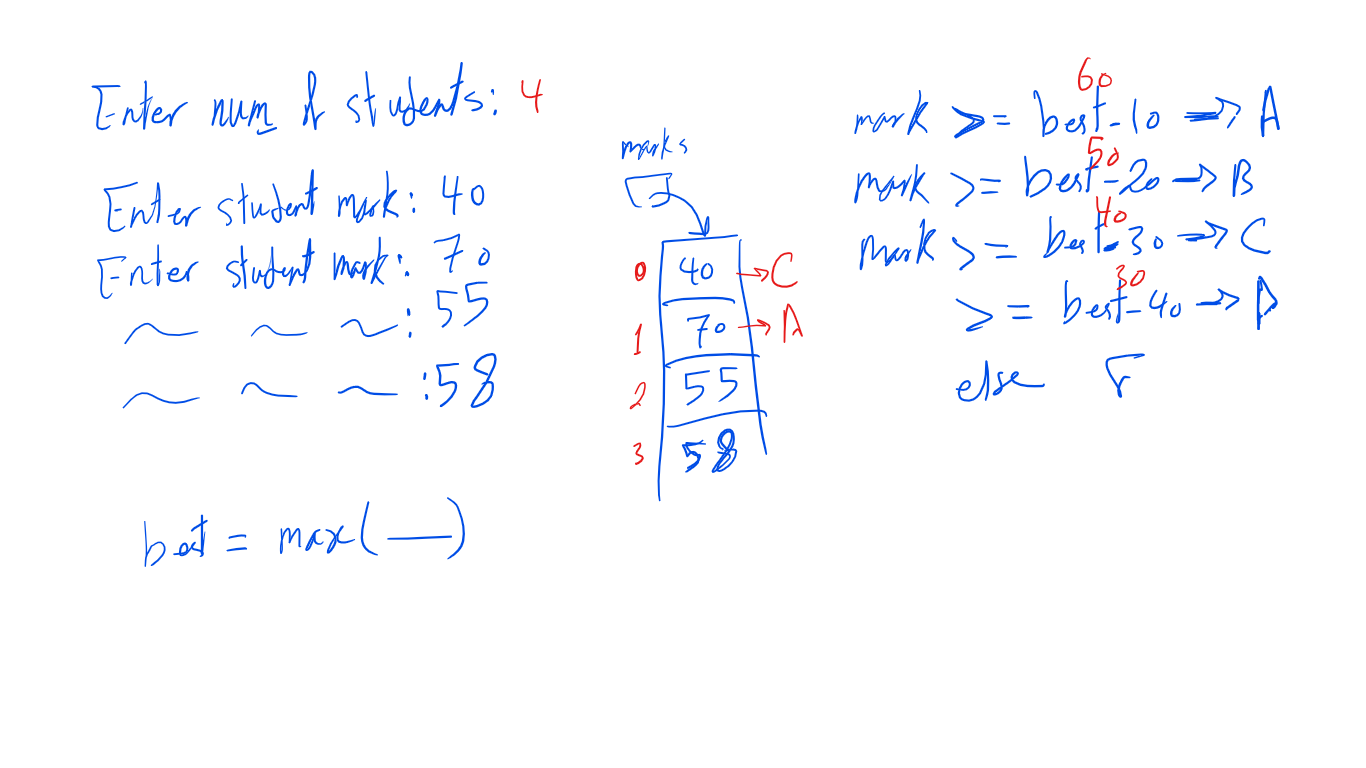 Enter num of students: 4
Enter student mark: 40
Enter student mark: 70
: 55
: 58
best = max( )
marks
0 40 → C
1 70 → A
2 55
3 58
60
mark >= best-10 → A
50
mark >= best-20 → B
40
mark >= best-30 → C
30
>= best-40 → D
else F